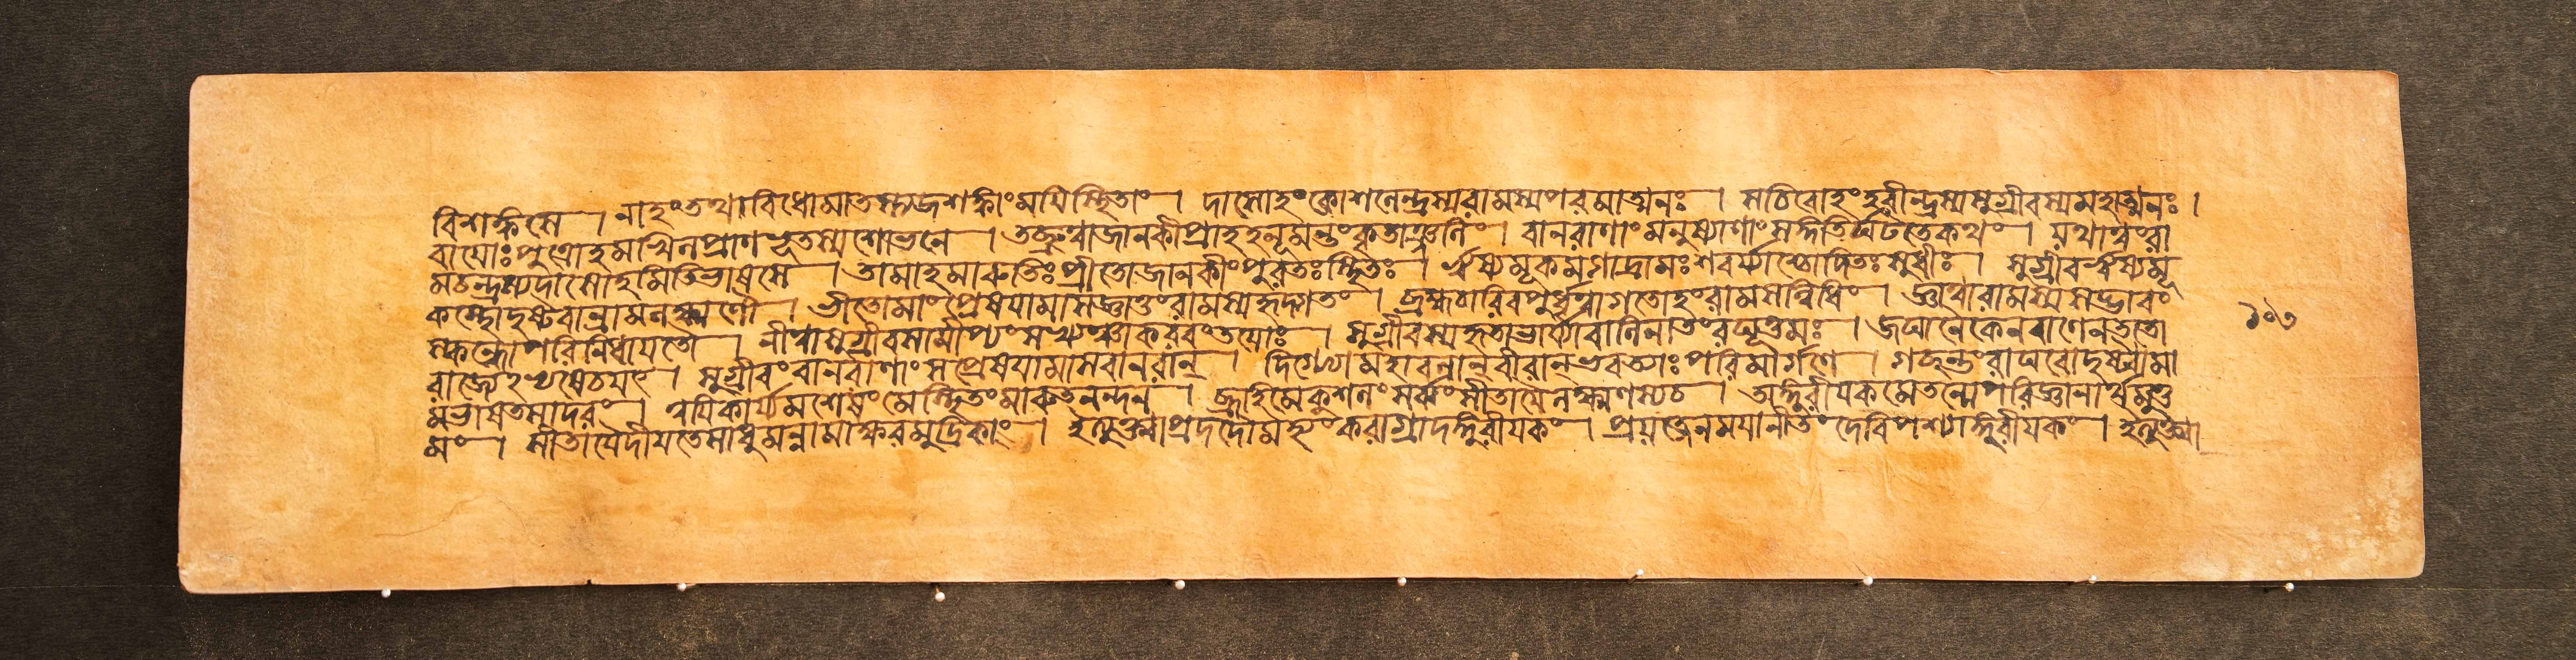 বিশঙ্কসে । নাহংতথাবিধোমাতস্ত্যজশঙ্কাংময়িস্থিতাং । দাসোহংকোশলেন্দ্রস্যরামস্যপরমাত্মনঃ । সচিবোহংহরীন্দ্রস্যসুগ্রীবস্যমহাত্মনঃ ।
বায়োঃপুত্রোহমখিলপ্রাণভূতস্যশোভনে । তচ্ছ্রুত্বাজানকীপ্রাহহনূমন্তংকৃতাঞ্জলিং । বানরাণাংমনুষ্যাণাংসঙ্গতির্ঘটতেকথং । যথাত্বংরা
মচন্দ্রস্যদাসোহমিতিভাষসে । তামাহমারুতিঃপ্রীতোজানকীংপুরতঃস্থিতঃ । ঋষ্যমূকমগাদ্রামঃশবর্য্যাচোদিতঃসুধীঃ । সুগ্রীবঋষ্যমূ
কস্থোদৃষ্টবান্রামলক্ষ্মণৌ । ভীতোমাংপ্রেষয়ামাসজ্ঞাতুংরামস্যহৃদ্গতং । ব্রহ্মচারিবপুর্ধৃত্বাগতোহংরামসন্নিধিং । জ্ঞাত্বারামস্যসদ্ভাবং
স্কন্ধোপরিনিধায়তৌ । নীত্বাসুগ্রীবসামীপ্যংসখ্যঞ্চাকরবংতয়োঃ । সুগ্রীবস্যহৃতাভার্য্যাবালিনাতংরঘূত্তমঃ । জঘানৈকেনবাণেনততো
রাজ্যেহভ্যষেচয়ৎ । সুগ্রীবংবানরাণাংসপ্রেষয়ামাসবানরান্ । দিগ্ভ্যোমহাবলান্বীরান্ভবত্যাঃপরিমার্গণে । গচ্ছন্তংরাঘবোদৃষ্ট্বামা
মভাষতসাদরং । ত্বয়িকার্য্যমশেষংমেস্থিতংমারুতনন্দন । ব্রূহিমেকুশলংসর্ব্বংসীতায়ৈলক্ষ্মণস্যচ । অঙ্গুরীয়কমেতন্মেপরিজ্ঞানার্থমুত্ত
মং । সীতায়ৈদীয়তেসাধুমন্নামাক্ষরমুদ্রিকাং । ইত্যুক্ত্বাপ্রদদৌমহ্যংকরাগ্রাদঙ্গুরীয়কং । প্রযত্নেনময়ানীতংদেবিপশ্যাঙ্গুরীয়কং । ইত্যুক্ত্বা